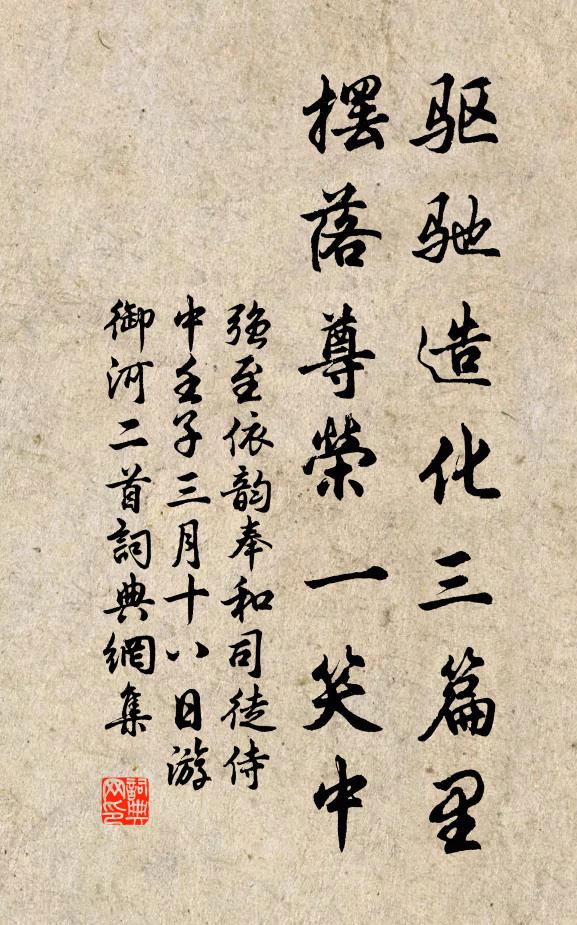 驱驰造化三篇里
摆落尊榮一笑中
强至依韵奉和司徒侍
中壬子三月十八日游
御河二首詞典網集
詞典网印